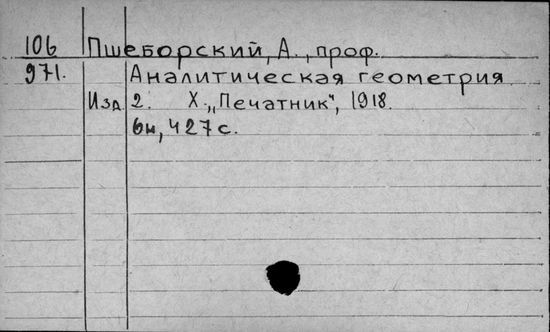 106 Пшеборский, А., проф.
971. Аналитическая геометрия
Изд. 2. Х. „Печатник", 1918.
6н, 427 с.